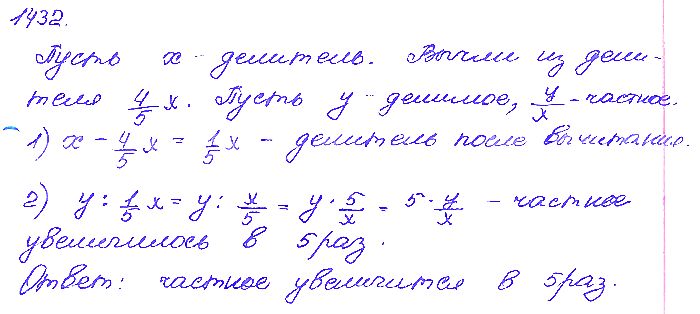 1432.
Пусть x - делитель. Вычли из дели-
теля 4/5 x. Пусть y - делимое, y/x - частное.
1) x - 4/5 x = 1/5 x - делитель после вычитания.
2) y : 1/5 x = y : x/5 = y · 5/x = 5 · y/x - частное
увеличилось в 5 раз.
Ответ: частное увеличится в 5 раз.